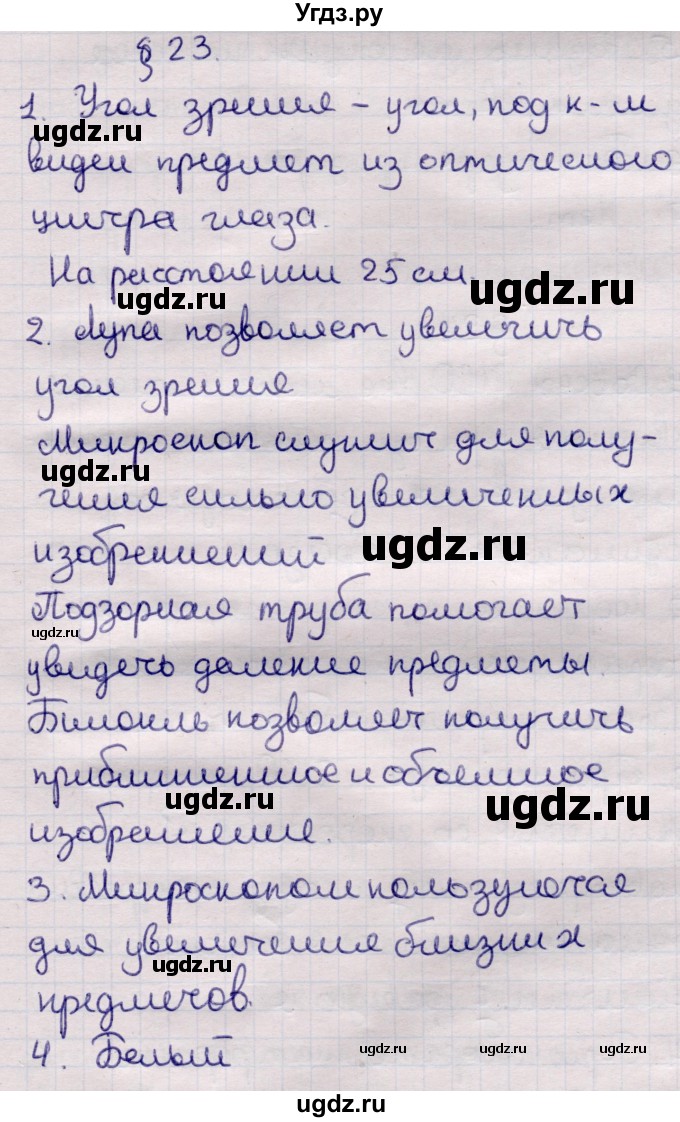 Угдз.ру
§ 23.
1. Угол зрения – угол, под к-м
ugdz.ru
видем предмет из оптического
центра глаза.
На расстоянии 25 см.
ugdz.ru
2. Лупа позволяет увеличить
угол зрения
Микроскоп служит для полу-
ugdz.ru
чения сильно увеличенных
изображений
ugdz.ru
Подзорная труба помогает
ugdz.ru
увидеть далекие предметы.
Бинокль позволяет получить
приближенное и объемное
ugdz.ru
ugdz.ru
изображение.
3. Микроскопом пользуются
для увеличения близких
ugdz.ru
предметов.
4. Белый
ugdz.ru
ugdz.ru
ugdz.ru
ugdz.ru